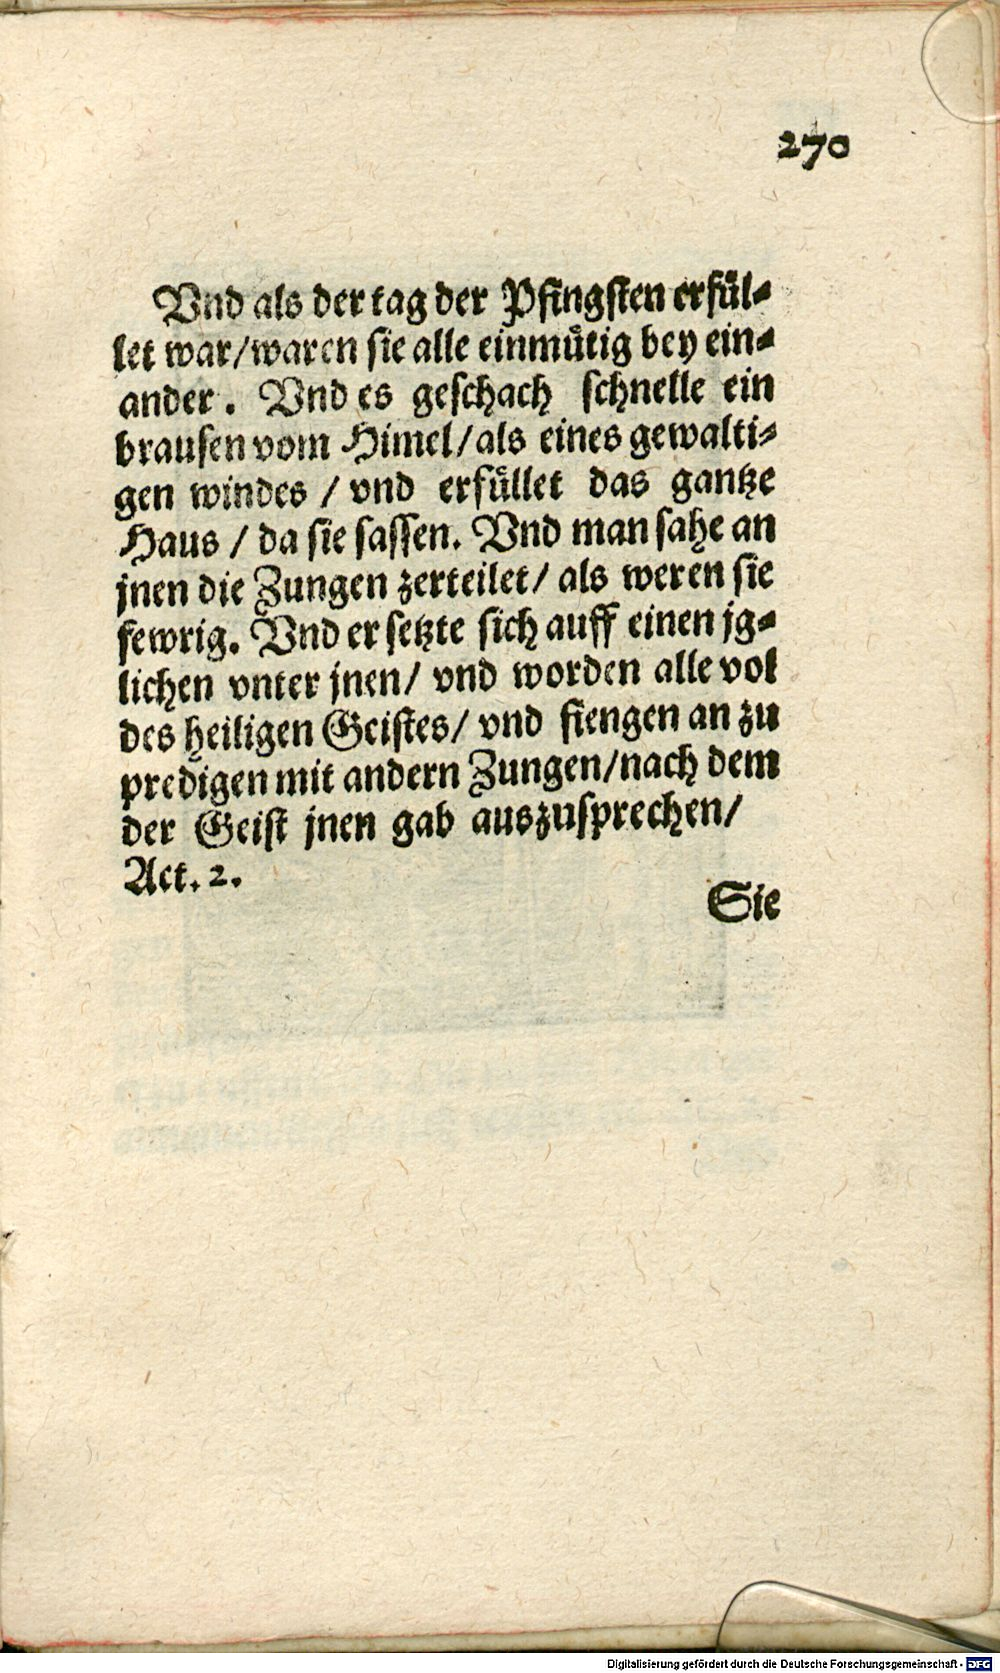 270
Vnd als der tag der Pfingſten erfuͤl⸗
let war/waren ſie alle einmuͤtig bey ein⸗
ander. Vnd es geſchach ſchnelle ein
brauſen vom Himel/als eines gewalti⸗
gen windes / vnd erfuͤllet das gantze
Haus / da ſie ſaſſen. Vnd man ſahe an
jnen die Zungen zerteilet/ als weren ſie
fewrig. Vnd er ſetzte ſich auff einen jg⸗
lichen vnter jnen/ vnd worden alle vol
des heiligen Geiſtes/ vnd fiengen an zu
predigen mit andern Zungen/nach dem
der Geiſt jnen gab auszuſprechen/
Act. 2.
Sie
Digitalisierung gefördert durch die Deutsche Forschungsgemeinschaft - DFG